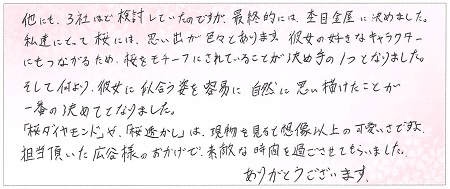 他にも、3社ほど検討していたのですが、最終的には、杢目金屋に決めました。
私達にとって桜には、思い出が色々とあります。彼女の好きなキャラクター
にもつながるため、桜をモチーフにされていることが決め手の1つとなりました。
そして何より、彼女に似合う姿を容易に自然に思い描けたことが
一番の決めてとなりました。
「桜ダイヤモンド」や、「桜透かし」は、現物を見ると想像以上の可愛いさですよ。
担当頂いた広谷様のおかげで、素敵な時間を過ごさせてもらいました。
ありがとうございます。